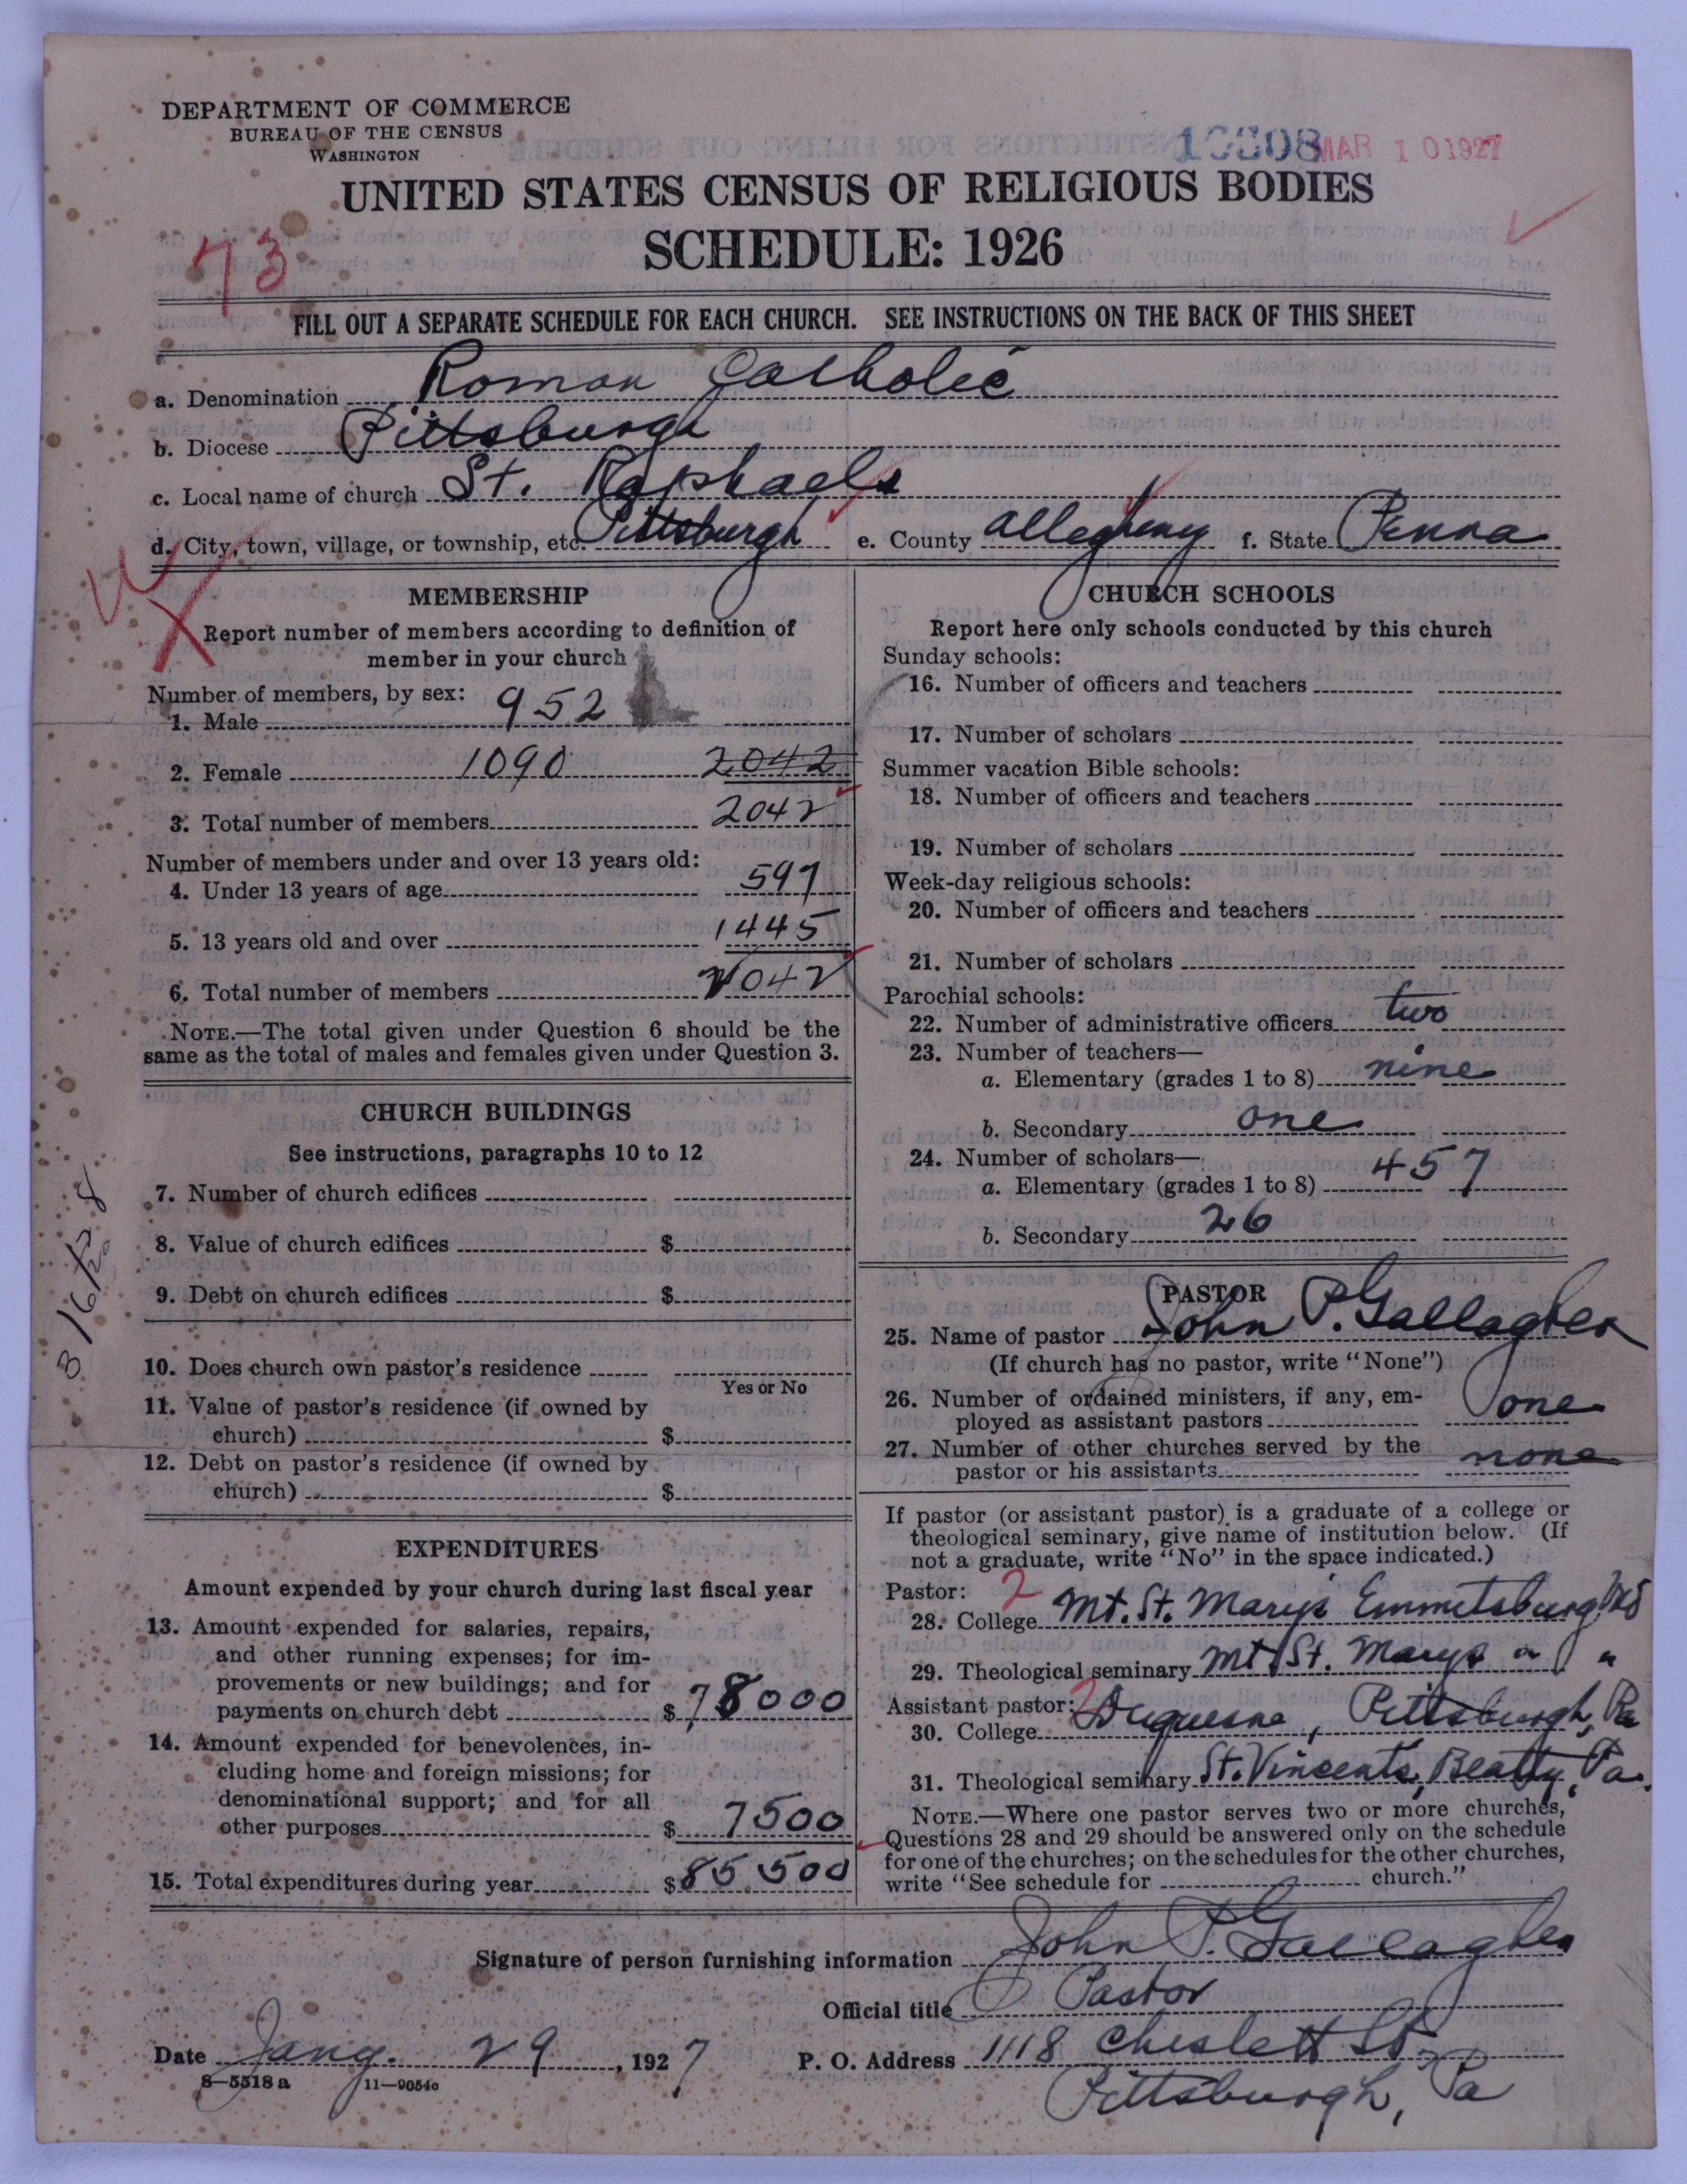 DEPARTMENT OF COMMERCE
BUREAU OF THE CENSUS
WASHINGTON
MAR 10 1927
UNITED STATES CENSUS OF RELIGIOUS BODIES
SCHEDULE: 1926
73
FILL OUT A SEPARATE SCHEDULE FOR EACH CHURCH. SEE INSTRUCTIONS ON THE BACK OF THIS SHEET
a. Denomination Roman Catholic
b. Diocese Pittsburgh
c. Local name of church St. Raphaels
d. City, town, village, or township, etc. Pittsburgh e. County Allegheny f. State Penna
MEMBERSHIP
Report number of members according to definition of
member in your church
Number of members, by sex:
1. Male 952
2. Female 1090 2042
3. Total number of members 2042
Number of members under and over 13 years old:
4. Under 13 years of age 597
5. 13 years old and over 1445
6. Total number of members 2042
NOTE.—The total given under Question 6 should be the
same as the total of males and females given under Question 3.
CHURCH BUILDINGS
See instructions, paragraphs 10 to 12
7. Number of church edifices
8. Value of church edifices $
9. Debt on church edifices $
10. Does church own pastor's residence
Yes or No
11. Value of pastor's residence (if owned by
church) $
12. Debt on pastor's residence (if owned by
church) $
3/16/28
EXPENDITURES
Amount expended by your church during last fiscal year
13. Amount expended for salaries, repairs,
and other running expenses; for im-
provements or new buildings; and for
payments on church debt $78000
14. Amount expended for benevolences, in-
cluding home and foreign missions; for
denominational support; and for all
other purposes $ 7500
15. Total expenditures during year $85500
CHURCH SCHOOLS
Report here only schools conducted by this church
Sunday schools:
16. Number of officers and teachers
17. Number of scholars
Summer vacation Bible schools:
18. Number of officers and teachers
19. Number of scholars
Week-day religious schools:
20. Number of officers and teachers
21. Number of scholars
Parochial schools:
22. Number of administrative officers two
23. Number of teachers—
a. Elementary (grades 1 to 8) nine
b. Secondary one
24. Number of scholars—
a. Elementary (grades 1 to 8) 457
b. Secondary 26
PASTOR
25. Name of pastor John P. Gallagher
(If church has no pastor, write "None")
26. Number of ordained ministers, if any, em-
ployed as assistant pastors one
27. Number of other churches served by the
pastor or his assistants none
If pastor (or assistant pastor) is a graduate of a college or
theological seminary, give name of institution below. (If
not a graduate, write "No" in the space indicated.)
Pastor: 2
28. College Mt. St. Mary's Emmitsburg Md
29. Theological seminary Mt St. Marys " "
Assistant pastor: 2
30. College Duquesne, Pittsburgh, Pa
31. Theological seminary St. Vincents, Beatty, Pa.
NOTE.—Where one pastor serves two or more churches,
Questions 28 and 29 should be answered only on the schedule
for one of the churches; on the schedules for the other churches,
write "See schedule for church."
Signature of person furnishing information John P. Gallagher
Official title Pastor
Date Jany. 29, 1927 P. O. Address 1118 Cheslett St.
8—5518a 11—9054c
Pittsburgh, Pa